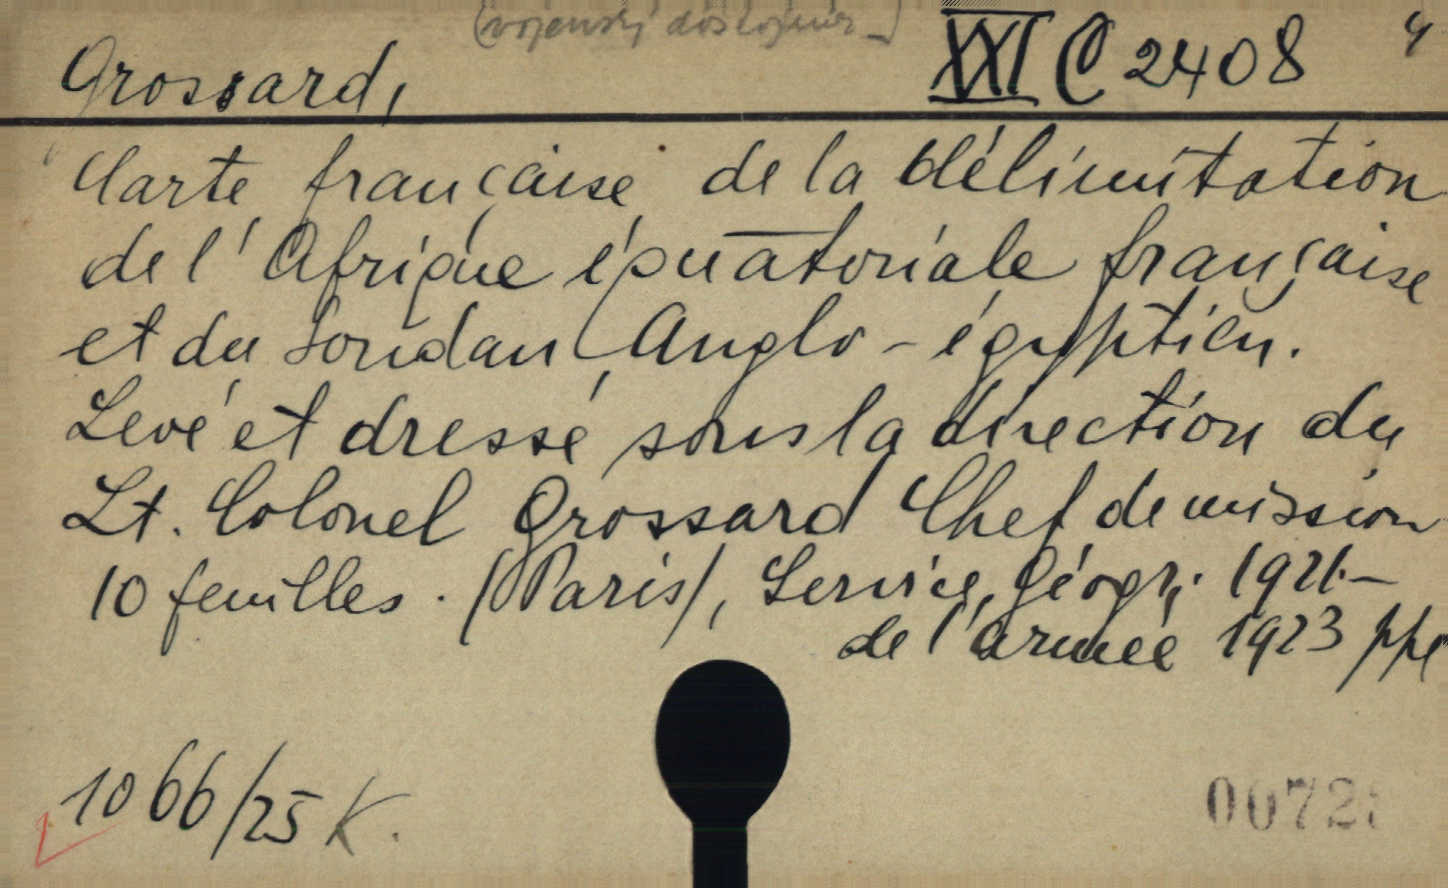 (vojenský důstojník-)
XXI C 2408
Grossard,
Carte française de la délimitation
de l'Afrique équatoriale française
et du Soudan Anglo-égyptien.
Levé et dressé sous la direction du
Lt. Colonel Grossard Chef de mission
10 feuilles. (Paris), Service Géogr. 1921-
de l'armée 1923 ppl
1066/25 K.
0072